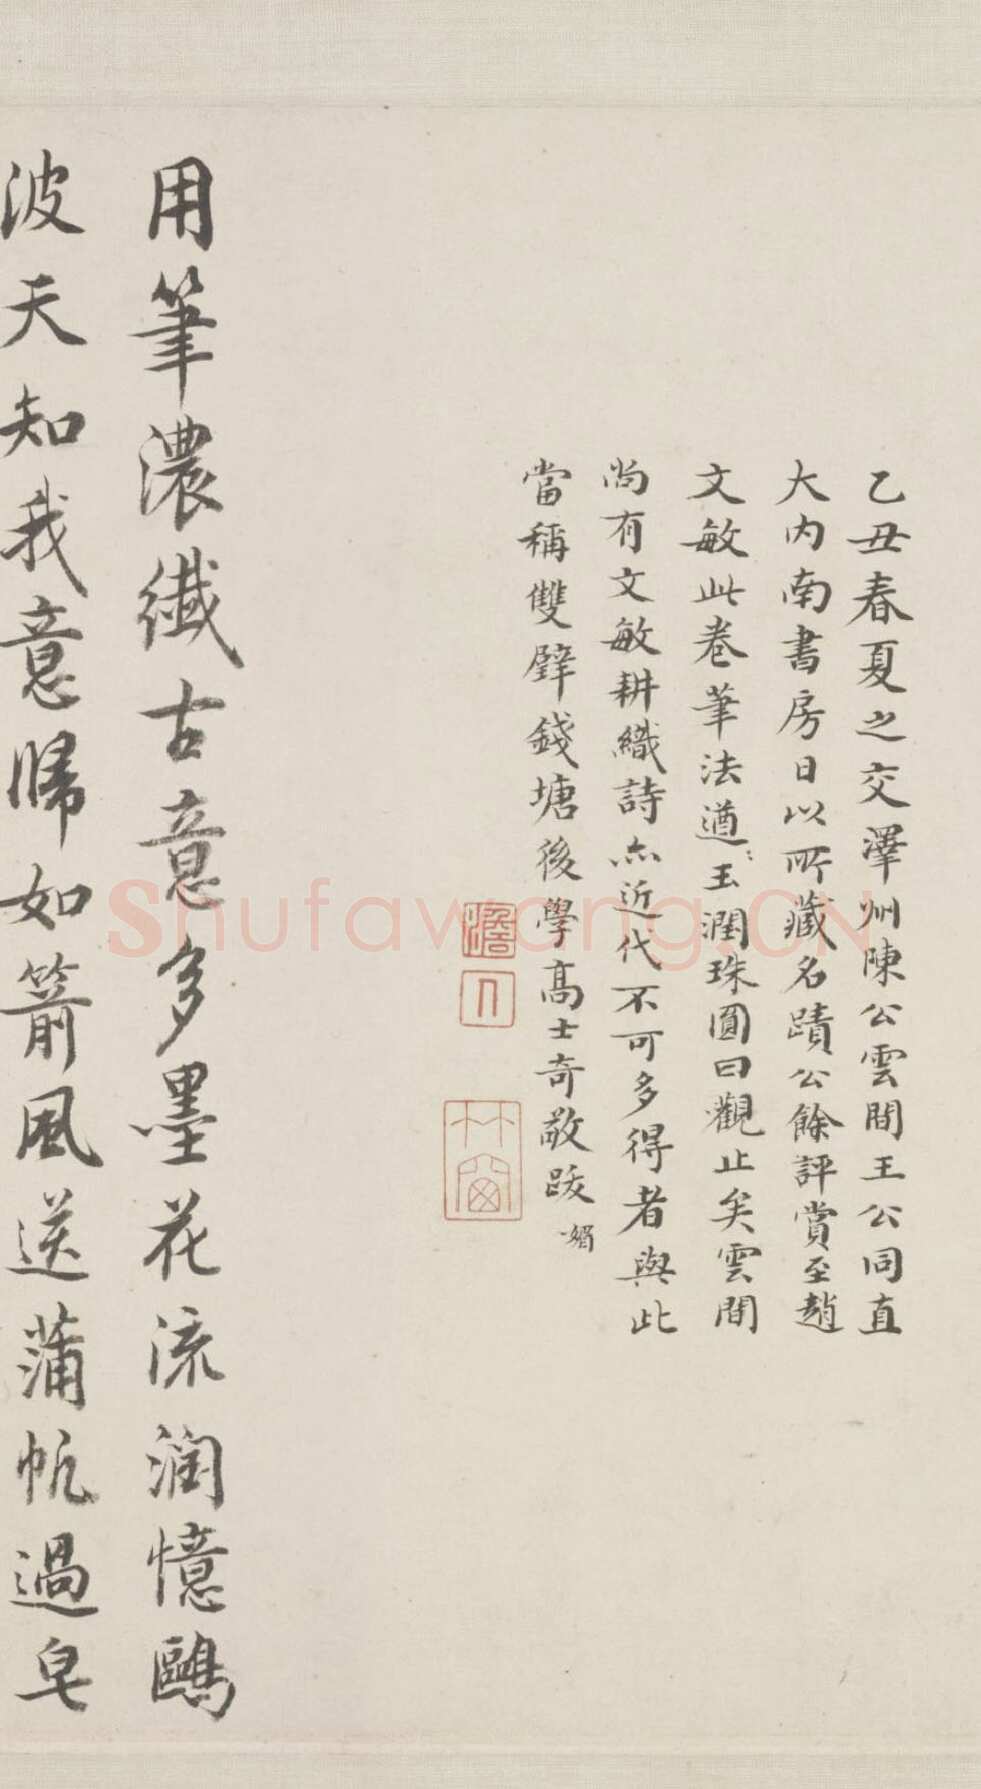 乙丑春夏之交澤州陳公雲間王公同直
大內南書房日以所藏名蹟公餘評賞至趙
文敏此卷筆法遒〻玉潤珠圓曰觀止矣雲間
尚有文敏耕織詩亦近代不可多得者與此
當稱雙璧錢塘後學高士奇敬跋
用筆濃纖古意多墨花流潤憶鷗
波天知我意歸如箭風送蒲帆過皂
Shufawang.CN